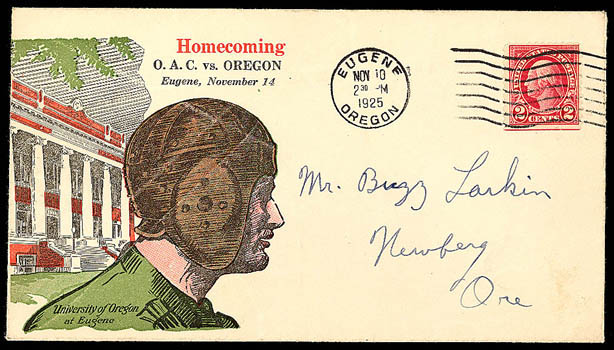 Homecoming
O. A. C. vs. OREGON
Eugene, November 14
EUGENE
NOV 10
2 30 PM
1925
OREGON
2 CENTS 2
Mr. Buzz Larkin
Newberg
Ore
University of Oregon
at Eugene